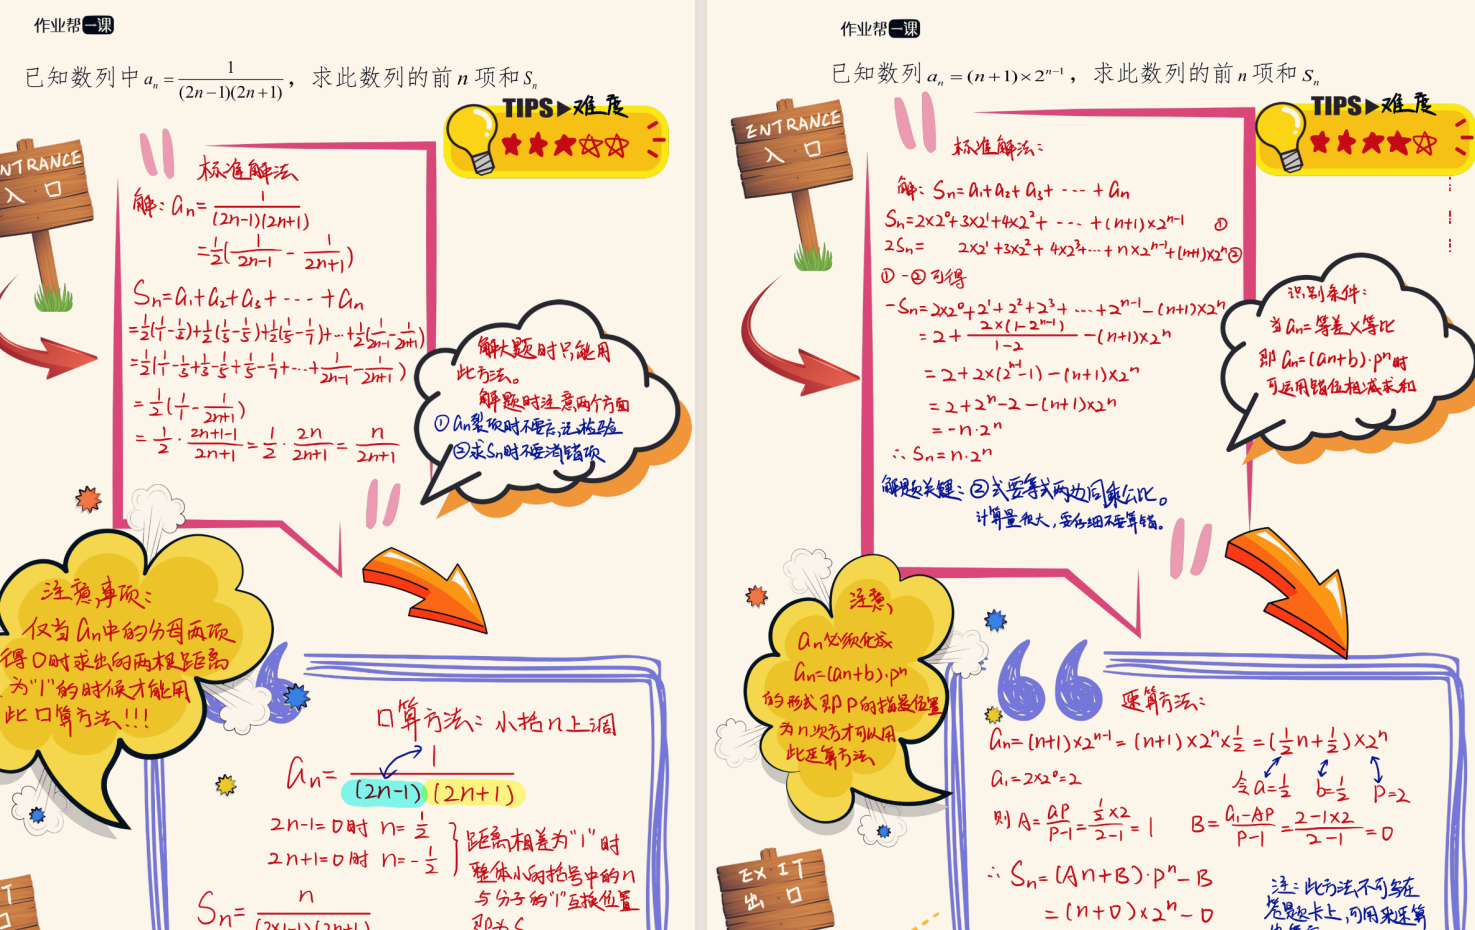 作业帮一课
已知数列中 aₙ = 1/((2n−1)(2n+1))，求此数列的前 n 项和 Sₙ
TIPS▶难度
ENTRANCE
入口
标准解法
解：aₙ= 1/((2n-1)(2n+1))
=½(1/(2n-1) - 1/(2n+1))
Sₙ=a₁+a₂+a₃+···+aₙ
=½(1/1-1/3)+½(1/3-1/5)+½(1/5-1/7)+···+½(1/(2n-1)-1/(2n+1))
=½(1/1-1/3+1/3-1/5+1/5-1/7+···+1/(2n-1)-1/(2n+1))
=½(1/1-1/(2n+1))
=½·(2n+1-1)/(2n+1)=½·2n/(2n+1)=n/(2n+1)
解大题时只能用
此方法。
解题时注意两个方面
①aₙ裂项时不要忘记检验
②求Sₙ时不要消错项
注意事项：
仅当aₙ中的分母两项
得0时求出的两根距离
为"1"的时候才能用
此口算方法!!!
口算方法：小括n上调
aₙ= 1/((2n-1)(2n+1))
2n-1=0时 n=½
2n+1=0时 n=-½
距离相差为"1"时
整体小的括号中的n
与分子的"1"互换位置
即为S
Sₙ= n/((2×1-1)(2n+1))
作业帮一课
已知数列 aₙ=(n+1)×2ⁿ⁻¹，求此数列的前 n 项和 Sₙ
TIPS▶难度
ENTRANCE
入口
标准解法：
解：Sₙ=a₁+a₂+a₃+···+aₙ
Sₙ=2×2⁰+3×2¹+4×2²+···+(n+1)×2ⁿ⁻¹ ①
2Sₙ= 2×2¹+3×2²+4×2³+···+n×2ⁿ⁻¹+(n+1)×2ⁿ②
①-②可得
-Sₙ=2×2⁰+2¹+2²+2³+···+2ⁿ⁻¹-(n+1)×2ⁿ
=2+ 2×(1-2ⁿ⁻¹)/(1-2) -(n+1)×2ⁿ
=2+2×(2ⁿ⁻¹-1)-(n+1)×2ⁿ
=2+2ⁿ-2-(n+1)×2ⁿ
=-n·2ⁿ
∴Sₙ=n·2ⁿ
解题关键：②式要等式两边同乘公比。
计算量很大，要仔细不要算错。
识别条件：
当aₙ=等差×等比
即aₙ=(an+b)·pⁿ时
可运用错位相减求和
注意，
aₙ必须化成
aₙ=(an+b)·pⁿ
的形式即P的指数位置
为n次方才可以用
此速算方法
速算方法：
aₙ=(n+1)×2ⁿ⁻¹=(n+1)×2ⁿ×½=(½n+½)×2ⁿ
a₁=2×2⁰=2 令a=½ b=½ P=2
则A=aP/(P-1)=(½×2)/(2-1)=1 B=(a₁-AP)/(P-1)=(2-1×2)/(2-1)=0
∴Sₙ=(An+B)·pⁿ-B
=(n+0)×2ⁿ-0
EXIT
出口
注：此方法不可写在
答题卡上，可用来速算